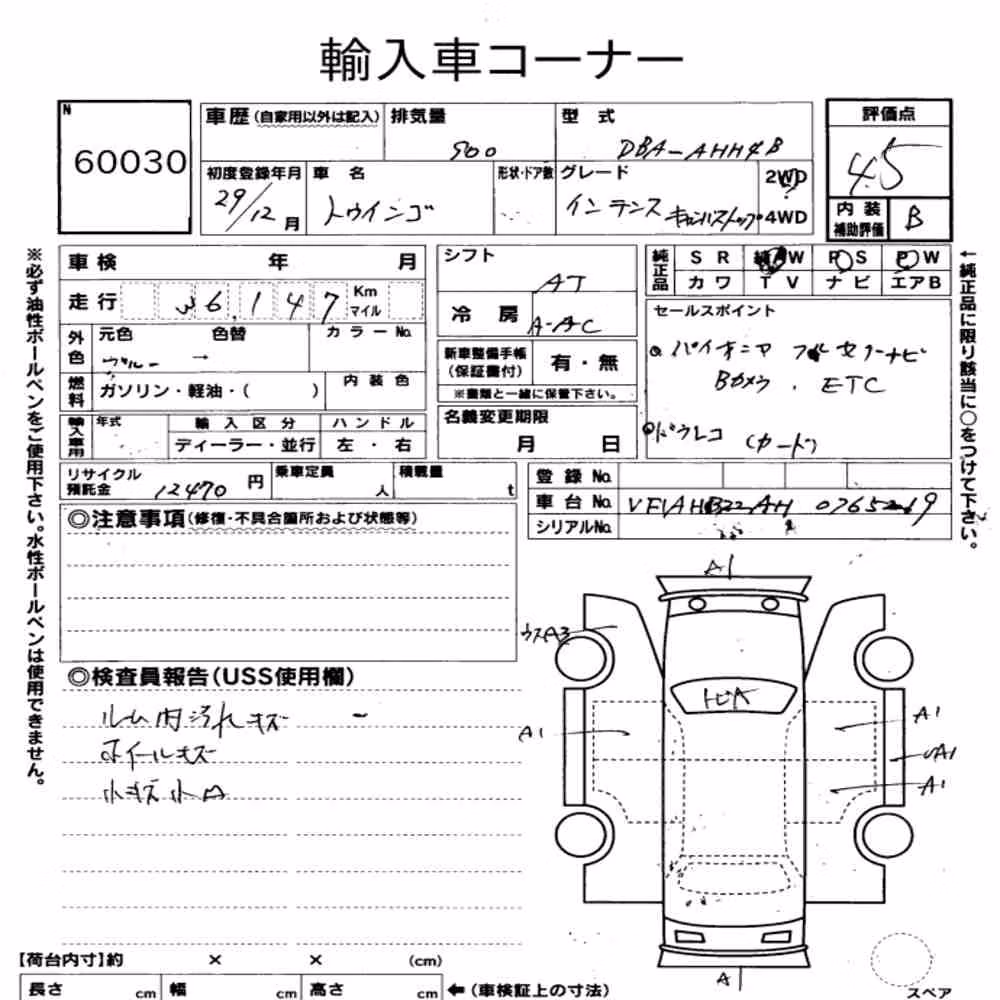 輸入車コーナー
N
60030
車歴 (自家用以外は記入)
排気量
900
型 式
DBA-AHH4B
評価点
4.5
内装
補助評価
B
初度登録年月
29/12月
車 名
トゥインゴ
形状・ドア数
グレード
インテンス キャンバストップ
2WD
・4WD
車検 年 月
走行 36,147 Km
マイル
シフト
AT
冷 房
A-AC
純正品
S R
W
P S
P W
カ ワ
T V
ナ ビ
エアB
外色
元色 色替
カラーNo.
ブルー →
燃料
ガソリン・軽油・( )
内装色
新車整備手帳
(保証書付)
有・無
※書類と一緒に保管下さい。
セールスポイント
パイオニア フルセグナビ
Bカメラ . ETC
ドラレコ (カード)
輸入車用
年式
輸入区分
ハンドル
ディーラー・並行
左・右
名義変更期限
月 日
リサイクル
預託金
12470 円
乗車定員
人
積載量
t
登録No.
車台No.
シリアルNo.
◎注意事項(修復・不具合箇所および状態等)
◎検査員報告(USS使用欄)
ルーム内汚れキズ
ホイールキズ
小キズ小凹
A1
ウスA3
トビA
A1
A1
A1
A
スペア
【荷台内寸】約 × × (cm)
長さ cm 幅 cm 高さ cm ←(車検証上の寸法)
※必ず油性ボールペンをご使用下さい。水性ボールペンは使用できません。
←純正品に限り該当に○をつけて下さい。